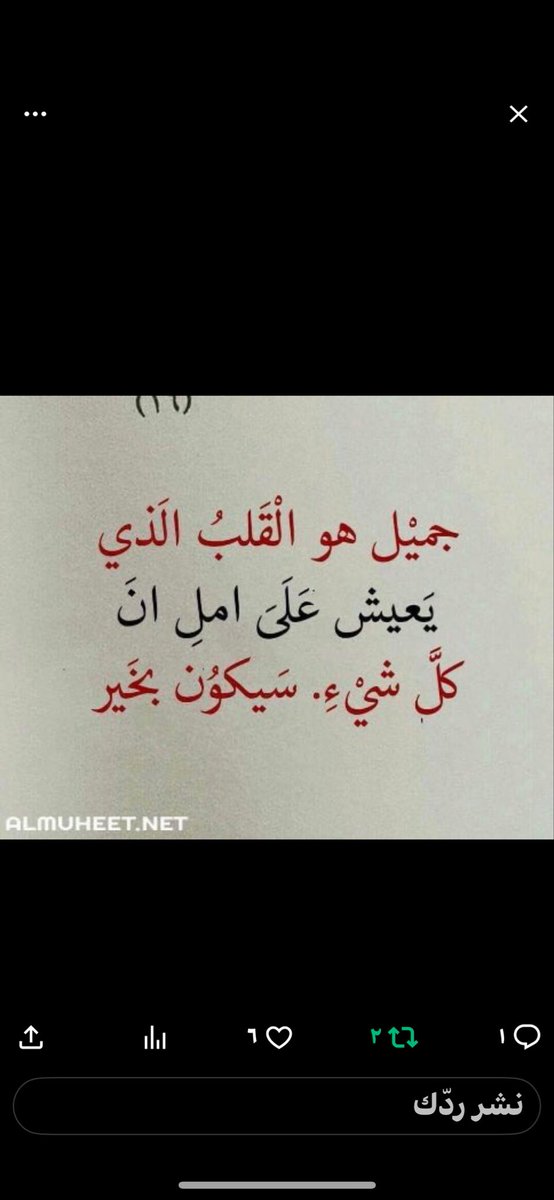 (١٦)
جميْل هو الْقَلبُ الَذي
يَعيش عَلَىَ املِ انَ
كلَّ شيْءِ. سَيكوُن بخَير
ALMUHEET.NET
٦
٢
١
نشر ردّك